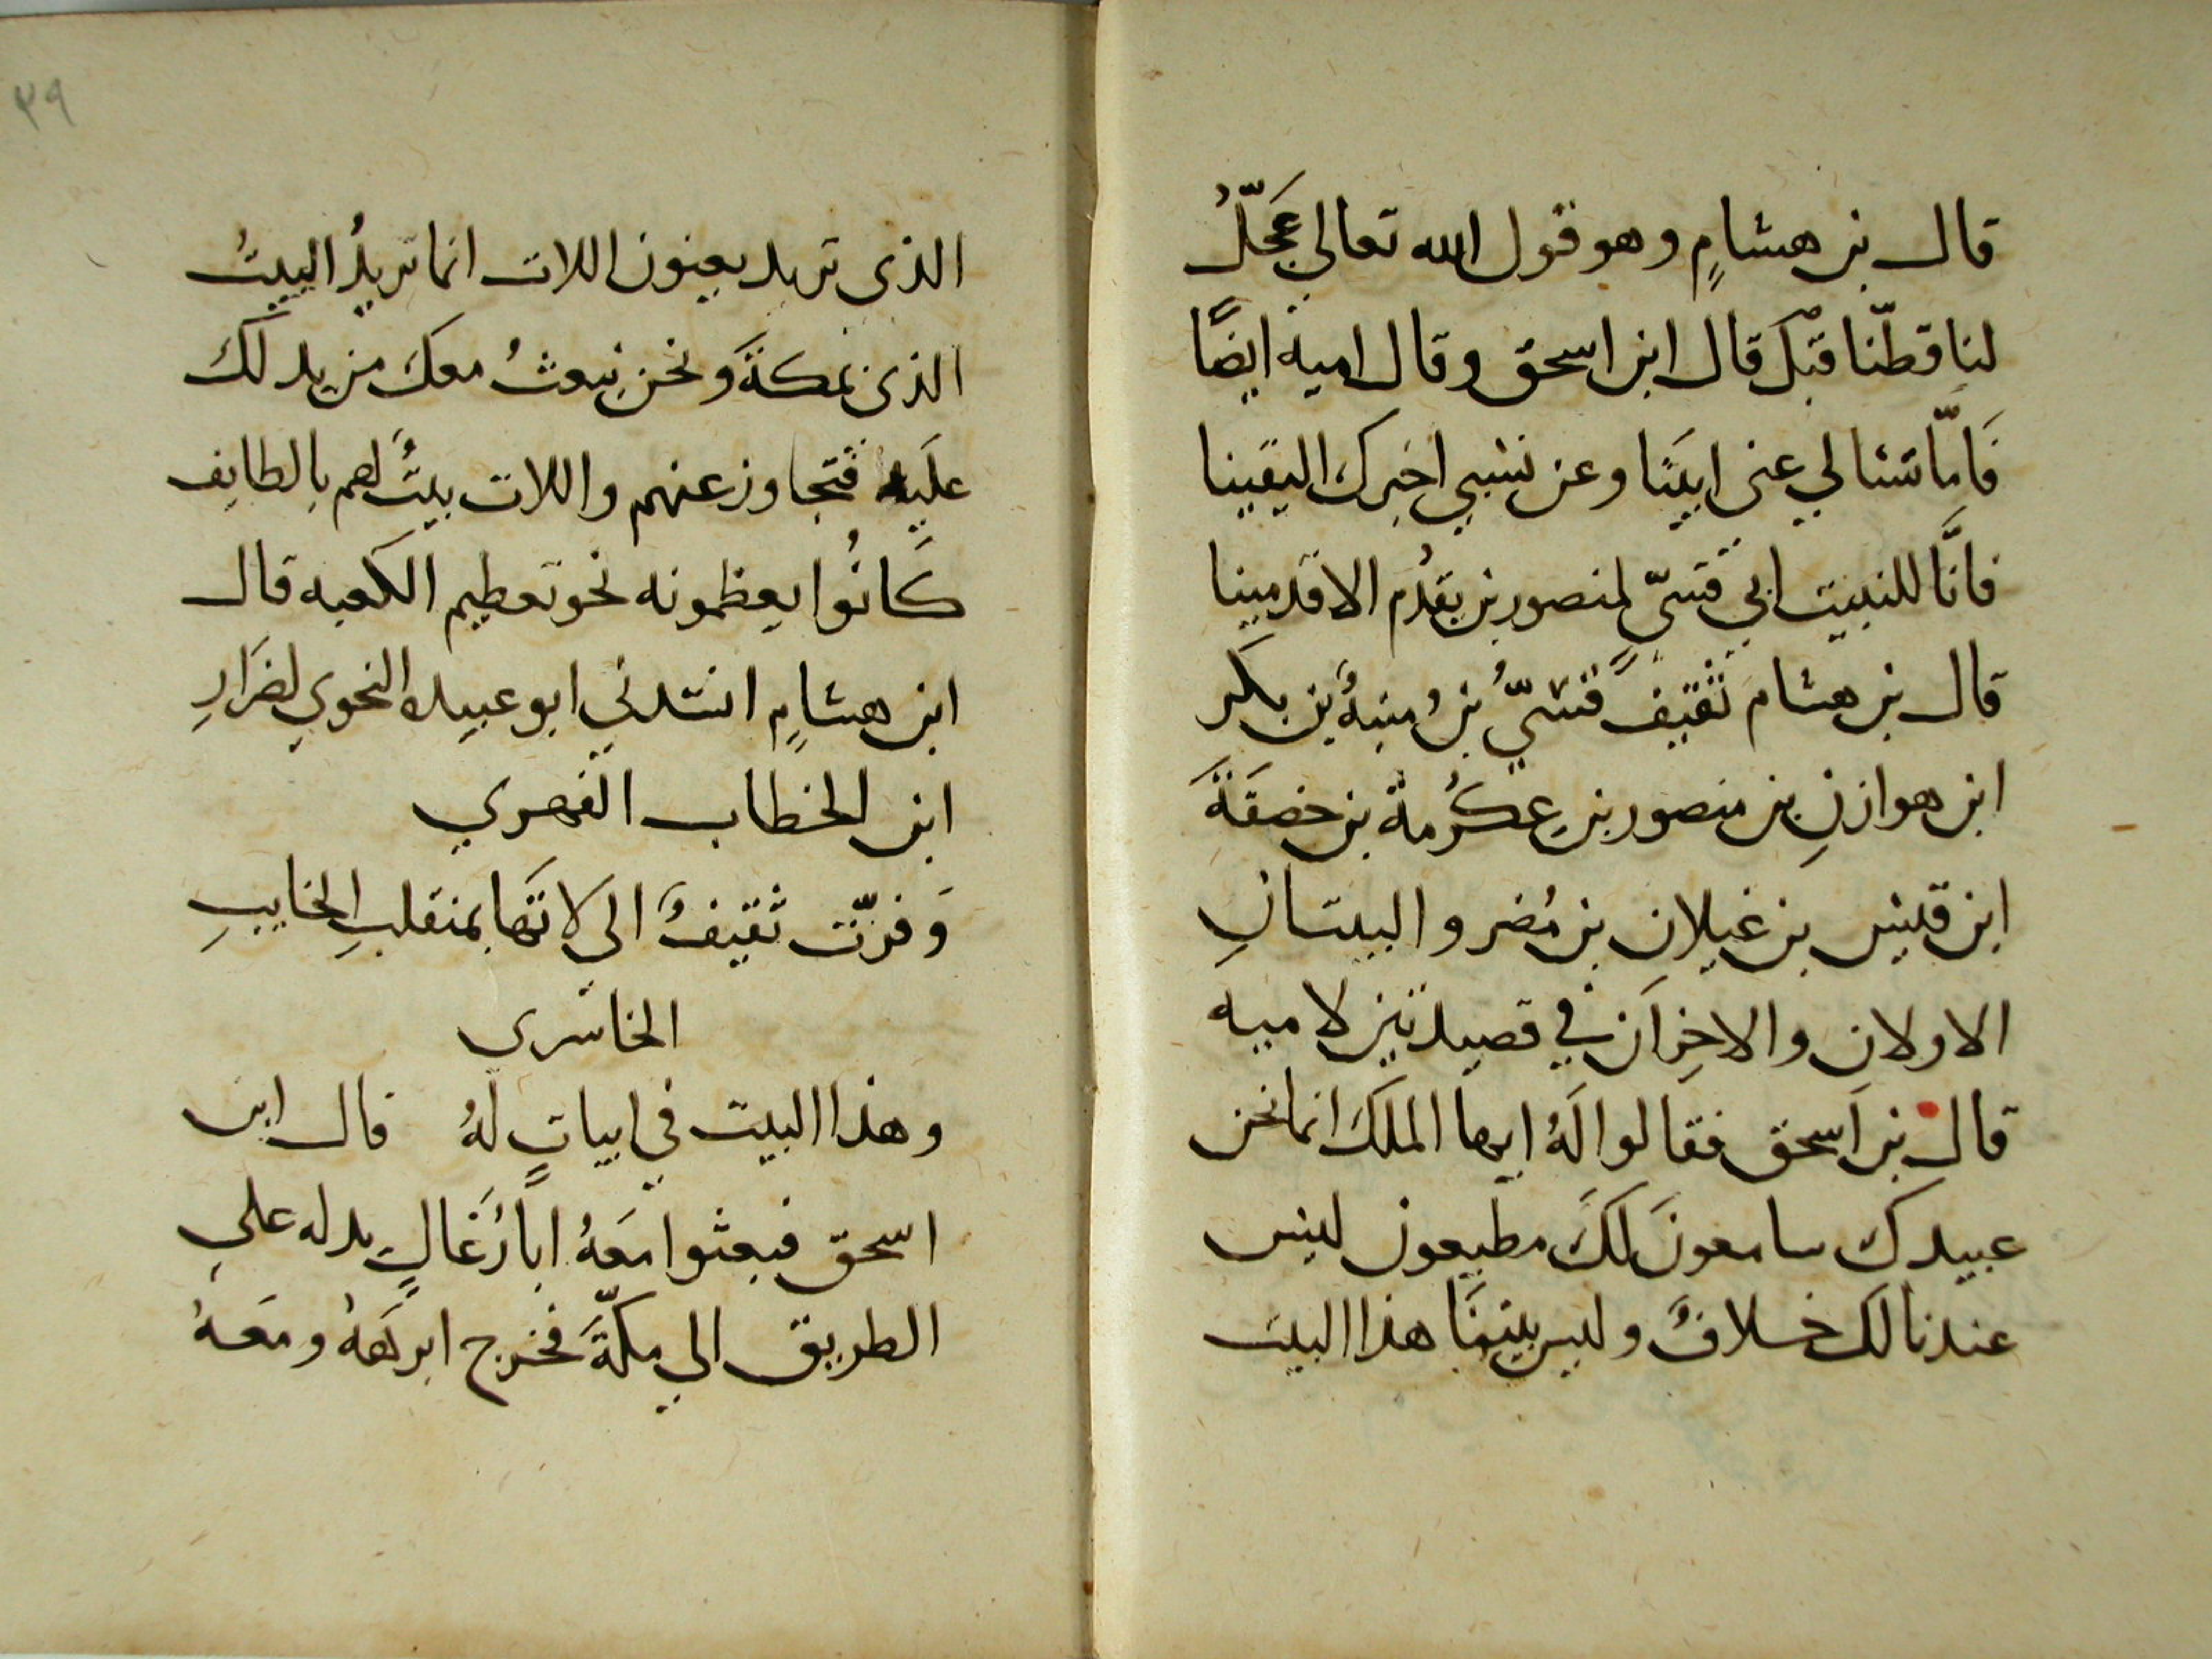 قال بن هشامٍ وهو قول الله تعالي عَجّلْ
لنا قطّنا قبْلَ قال ابن اسحق وقال اميه ايضًا
فَامّا تسْالي عني ابيَنَا وعن نسَبي اخبرك اليقينا
فانَّا للنبيت ابي قسَيّ لمنصور بن يقدُم الاقدمينا
قال بن هشام ثقيفٌ قسَيّ بنُ منبهُ بن بكر
ابن هوازنِ بن منصور بن عِكرُمة بن خصفَةَ
ابن قيس بن غيلان بن مُضر والبيتانِ
الاولانِ والاخِرَان في قصيدتين لاميه
قال بن اسحق فقالوا لَهُ ايها الملكَ انما نحن
عبيدك سامعونَ لكَ مطيعون ليس
عندنا لَك خلافٌ وليس بيتنَا هذا البيت
٣٩
الذي تريد يعنون اللات انما تريدُ البيتُ
الذي بمكةَ ونحن نبعثُ معكَ من يدلكَ
علَيه فتجاوز عنهم واللات بيتٌ لهم بالطايف
كَانُوا يعظمونه نحو تعطيم الكعبه قال
ابن هشامٍ انشدني ابو عبيده النحوي لضرَارِ
ابن الخطاب الفهري
وَفرّت ثقيفٌ الى لاتهَا بمنقلبِ الخايبِ
الخاسري
وهذا البيت في ابياتٍ لَهُ قال ابن
اسحق فبعثوا معَهُ ابَا رُغَالٍ يدله علي
الطريق الي مكّةَ فخرج ابرهَةُ ومعَهُ